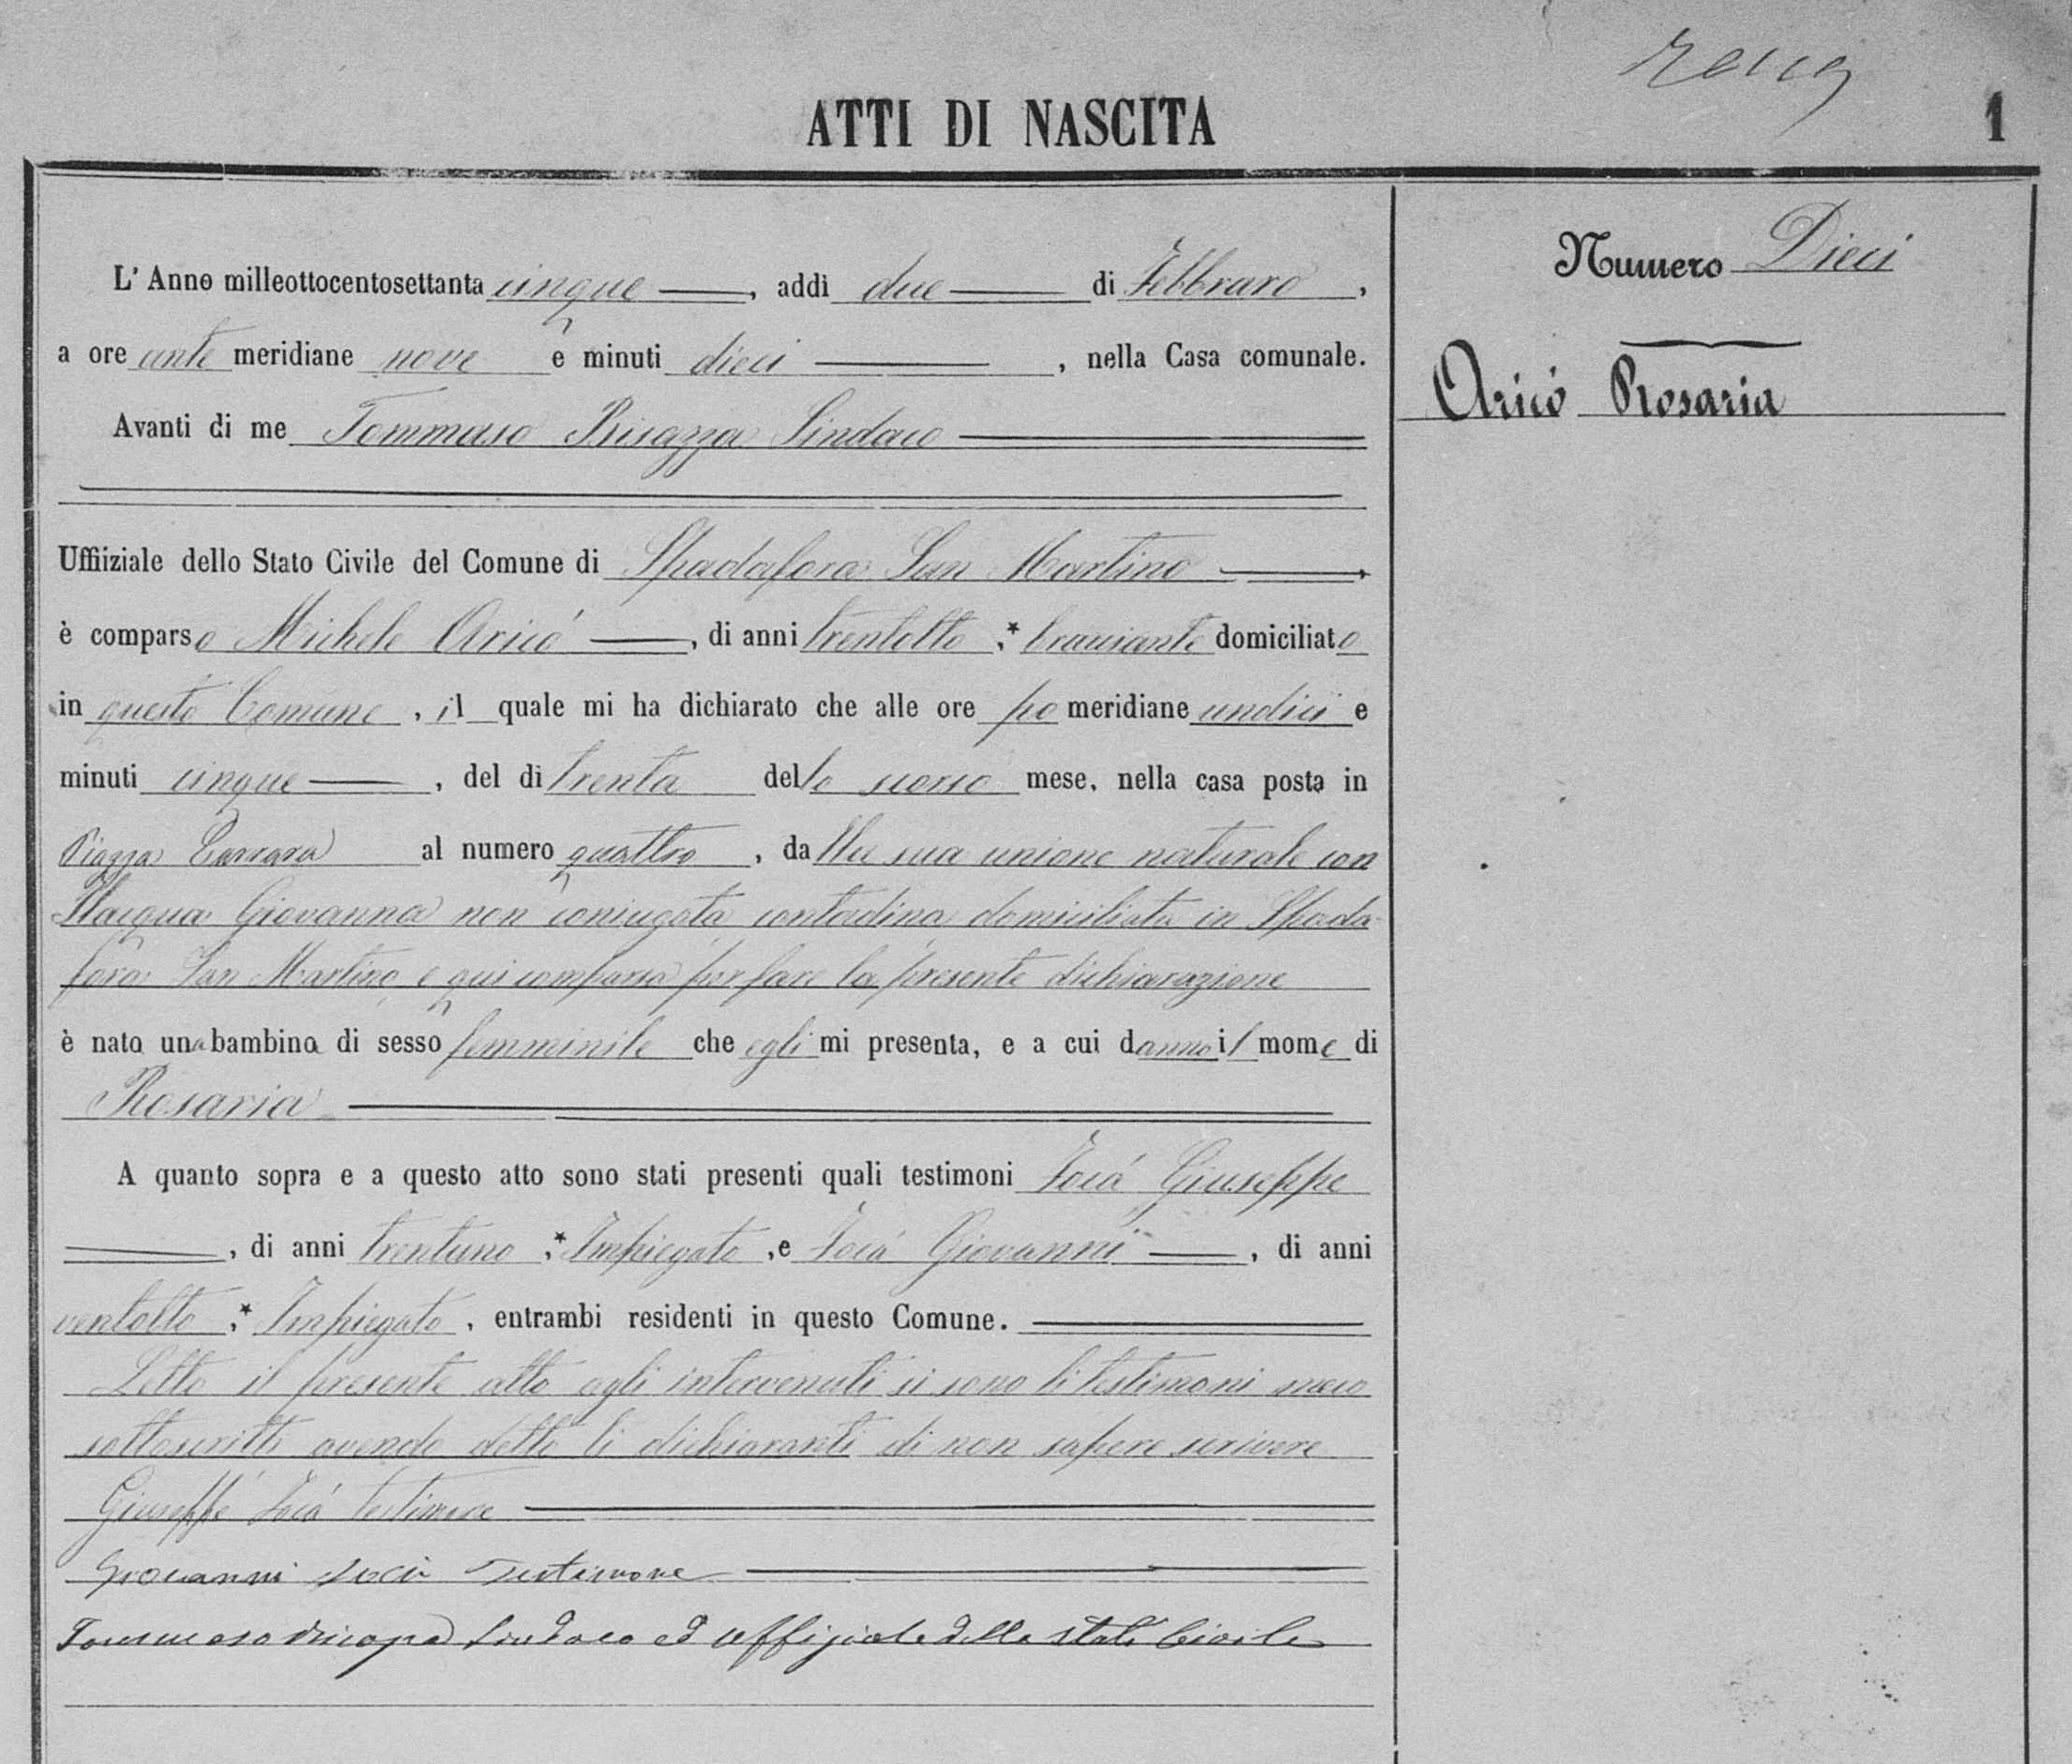 ATTI DI NASCITA
1
Numero Dieci
Aricó Rosaria
L' Anno milleottocentosettanta cinque, addì due di Febbraro,
a ore ante meridiane nove e minuti dieci, nella Casa comunale.
Avanti di me Tommaso Sindaco
Uffiiziale dello Stato Civile del Comune di Spadafora San Martino
è comparso Michele Aricó, di anni trentotto,* bracciante domiciliato
in questo Comune, il quale mi ha dichiarato che alle ore po meridiane undici e
minuti cinque, del dì trenta dello scorso mese, nella casa posta in
Piazza al numero quattro, dalla sua unione naturale con
Giovanna non coniugata contadina domiciliata in Spada
fora San Martino e qui comparsa per fare la presente dichiarazione
è nata una bambina di sesso femminile che egli mi presenta, e a cui danno il mome di
Rosaria
A quanto sopra e a questo atto sono stati presenti quali testimoni Giuseppe
, di anni trentuno,* Impiegato, e Giovanni, di anni
ventotto,* Impiegato, entrambi residenti in questo Comune.
Letto il presente atto agli intervenuti si sono li testimoni meco
sottoscritti avendo detto li dichiaranti di non sapere scrivere
Giuseppe testimone
Giovanni Testimone
Tommaso Sindaco ed uffiziale dello stato Civile